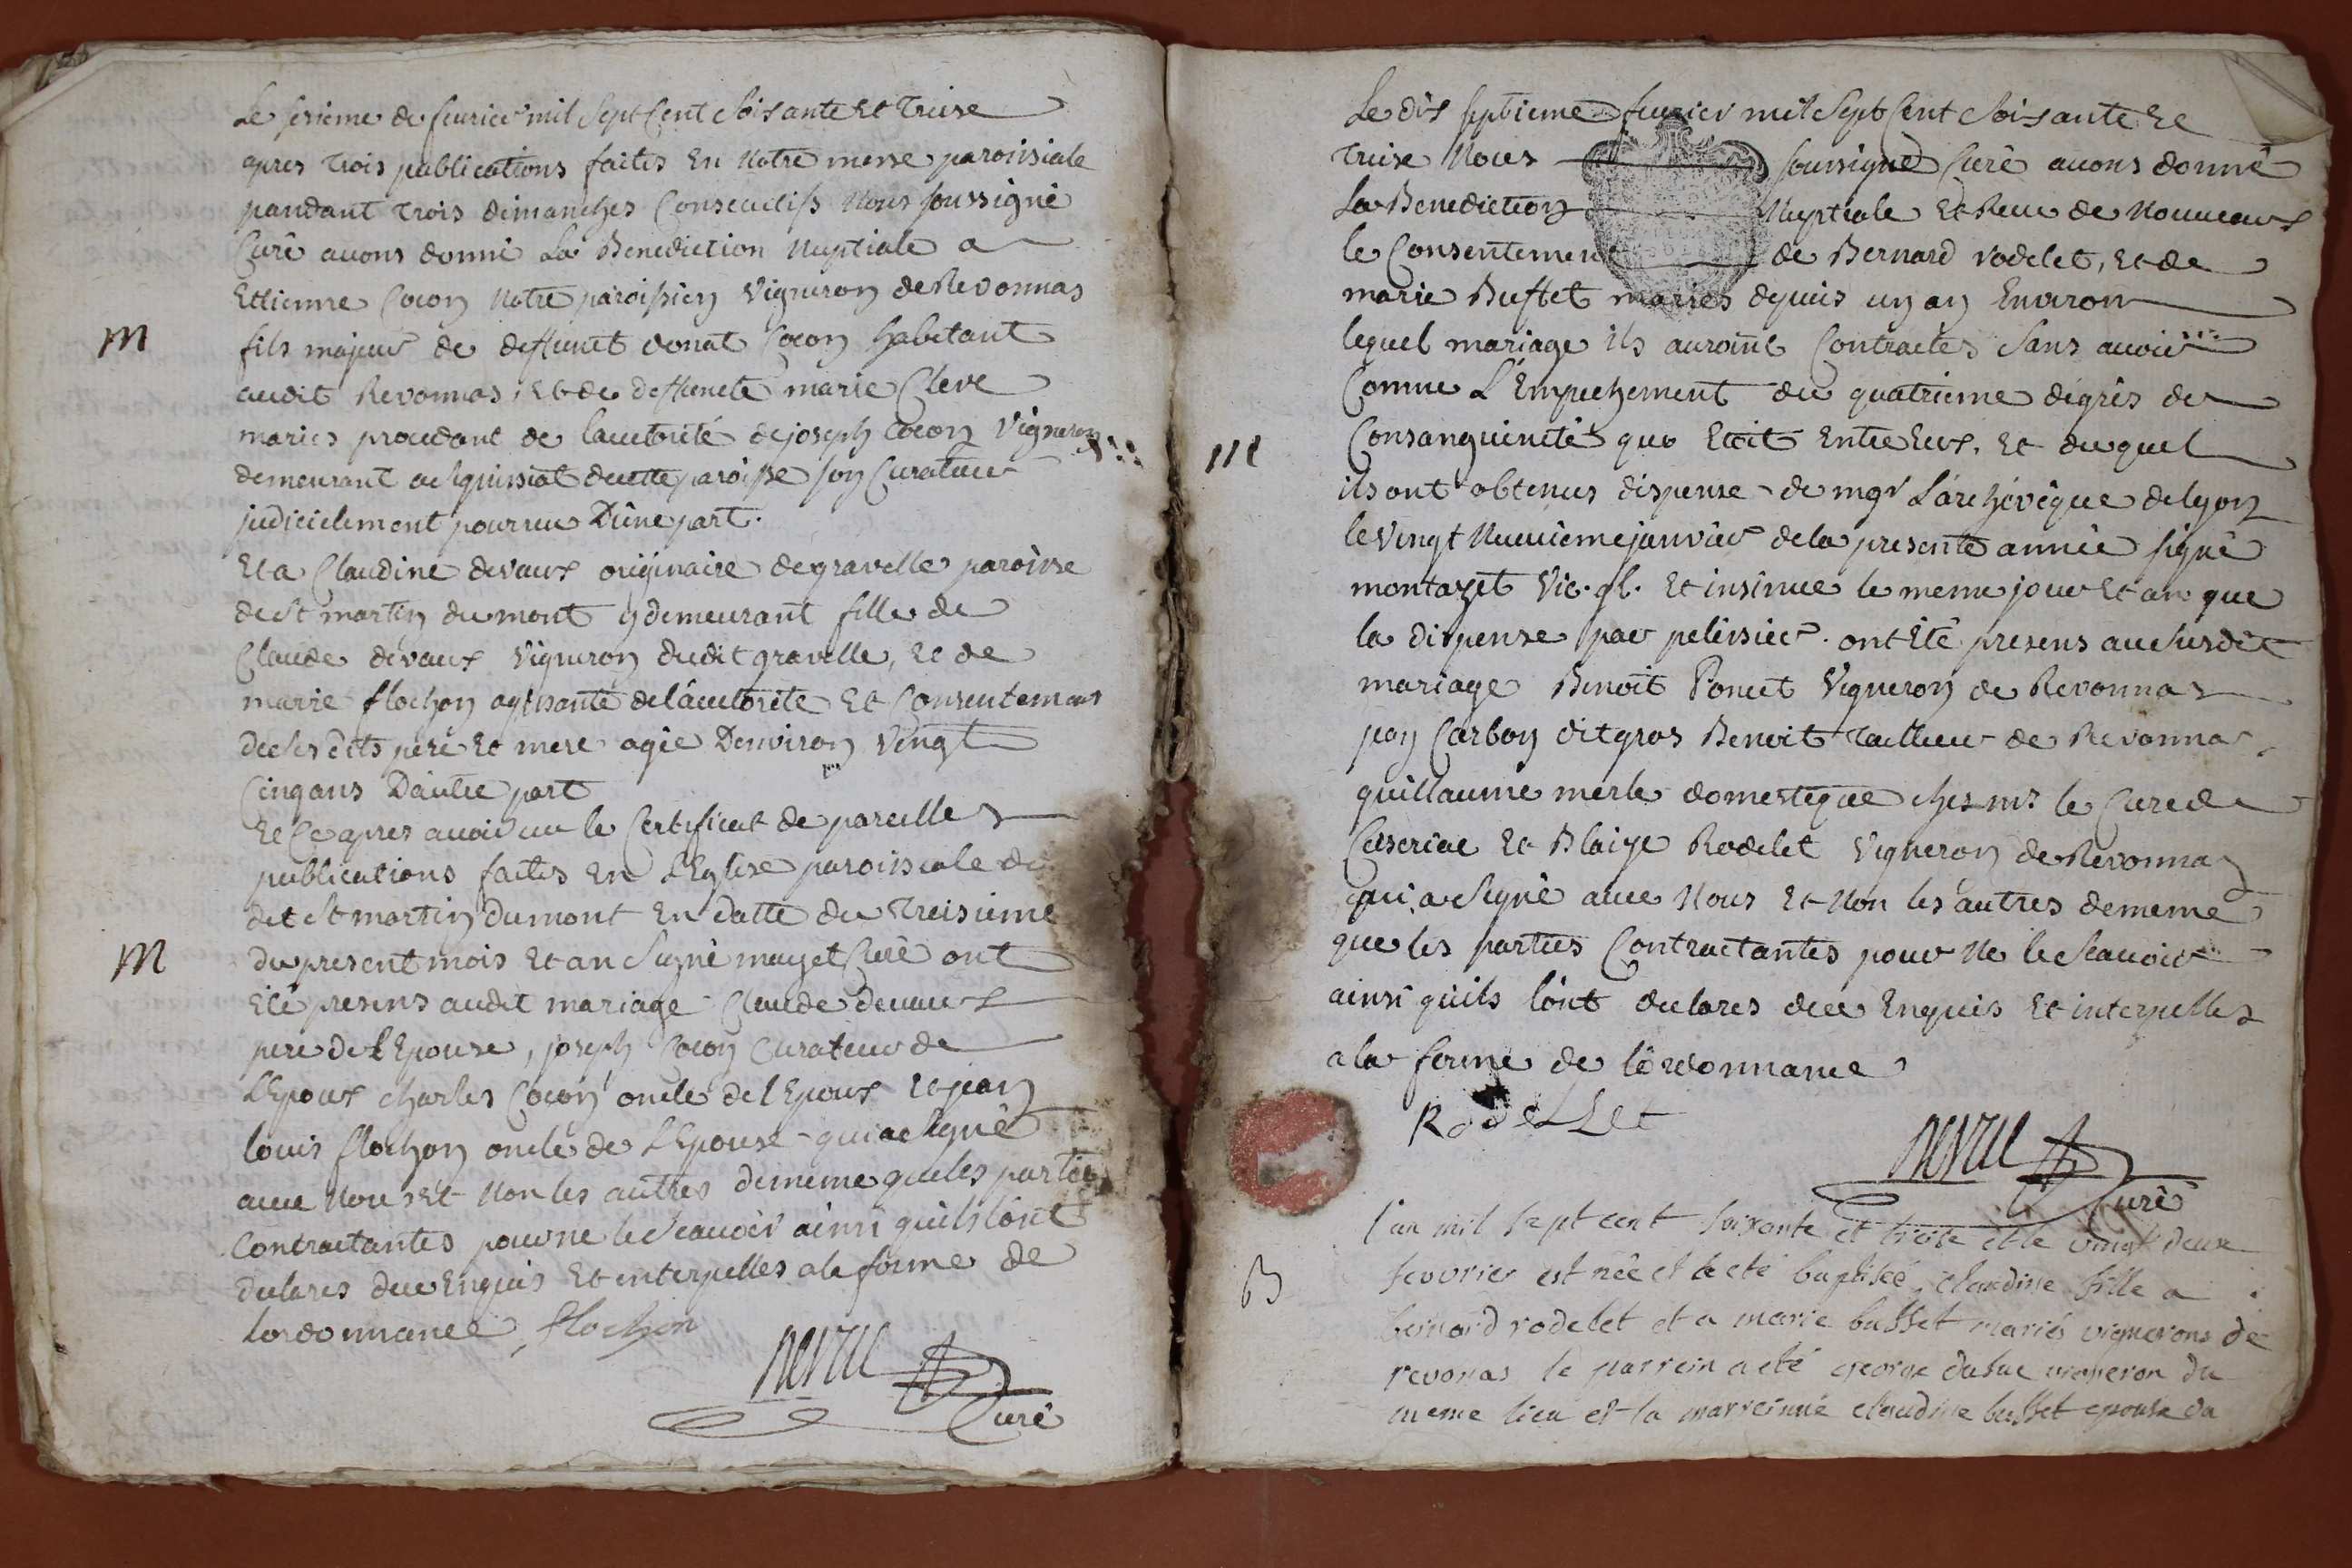 Le sesieme de feurier mil Sept Cent Soisante et Treise
apres Trois publications faites En Notre messe paroissiale
pandant Trois dimanches Consecutifs Nous soussigné
Curé auons donné La Benediction Nuptiale a
Ettienne Cocon Notre paroissien Vigneron de Revonnas
M
fils majeur de deffunct donat Cocon habitant
audit Revonnas, et de deffuncte marie Cleve
maries procedant de lauctorité de joseph Cocon Vigneron
demeurant a decette paroisse son Curateur
judicielement pourueu Dûne part.
Et a Claudine devaux originaire de gravelle paroisse
de St martin du mont y demeurant fille de
Claude devaux Vigneron dudit gravelle, et de
marie flochon agissante de lâuctorite et Consentement
de ses dits pere et mere agée Denviron Vingt
Cinq ans Dâutre part
Et Ce apres auoir uu le Certificat de pareilles
publications faites En L'Eglise paroissiale du
dit St martin dumont En datte du Treisieme
M
du present mois et an Signé mayet Curé ont
Eté presens audit mariage Claude devaux
pere de L'Epouse, joseph Cocon Curateur de
L'Epoux charles Cocon oncle de l'Epoux et jean
louis flochon oncle de L'Epouse qui a Signé
auec Nous et Non les autres de meme que les parties
Contractantes pour ne le Scauoir ainsi quils l'ont
declares dee Enquis et interpelles a la forme de
lordonnance, flochon
Curé
Le dix septieme feurier mil Sept Cent Soisante et
Treise Nous soussigné Curé auons donné
La Benediction Nuptiale et Receu de Nouueaux
le Consentement de Bernard rodelet, et de
marie Buffet maries depuis un an Environ
lequel mariage ils auroint Contractes Sans auoir
Connu L'Empechement du quatrieme degrés de
M
Consanguinité que Etoit Entre Eux, et du quel
ils ont obtenus dispense de mgr L'archévêque de lyon
le Vingt Neuuième janvier de la presente année signé
montazet Vic. gl. et insinué le meme jour et an que
la dispense par pelissier. ont Eté presens au Susdit
mariage Benoit Poncet Vigneron de Revonnas
jean Carbon dit gros Benoit Tailleur de Revonnas
guillaume merle domestique ches mr le Curé de
Ceseriac et Blaise Rodelet Vigneron de Revonnas
qui a Signé auec Nous et Non les autres de meme
que les parties Contractantes pour Ne le Scauoir
ainsi quils l'ont declares dee Enquis et interpelles
a la forme de lôrdonnance
RodeLLet
Curé
l'an mil sept cent soixante et treise et le vingt deux
B
fevrier est née et a eté baptisée claudine fille a
bernard rodelet et a marie buffet mariés vignerons de
revonas le parrein a eté george vigneron du
meme lieu et la marreinne claudine buffet epouse du